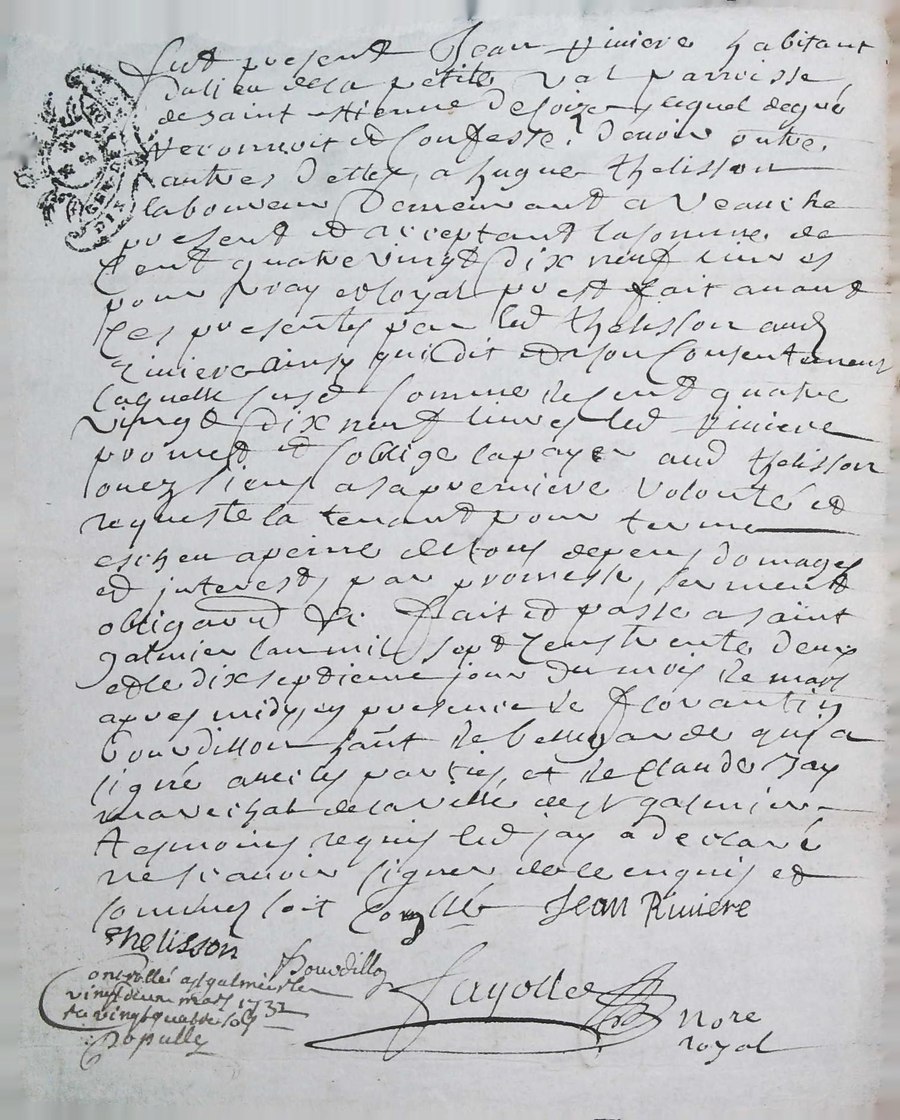 GEN DE
DIX
fut present Jean Riviere habitant
du lieu de la petite val parroisse
de saint Etienne lequel de gré
reconnoit et Confesse devoir outre
autres dettes, a hugue thelisson
laboureur Demeurant a Veauche
present et acceptant la somme de
Cent quatre vingt Dix neuf livres
pour vray et loyal prest fait avant
Ces presentes par led thelisson aud
Riviere ainsy quil dit et de son Consentement
laquelle susd somme de Cent quatre
vingt Dix neuf livres led Riviere
promet et soblige la payer aud thelisson
ou es siens a sa premiere volonté et
requeste la tenant pour terme
escheu a peine de tous depens domages
et interests, par promesse, serment
obligaōn &c fait et passé a saint
galmier lan mil sept Cens trente deux
et le dix septieme jour du mois de mars
apres midy, en presence de florantin
bourdillon de bellegarde qui a
signé avec les parties, et de Claude Jay
marechal de la ville de st galmier
tesmoins requis led jay a declaré
ne scavoir signer de ce enquis et
sommés soit Coñllé Jean Riviere
thelisson Bourdillon
Controllé a st galmier le
vingt deux mars 1732
vingt quatre sols
Fayolle
Nore
royal